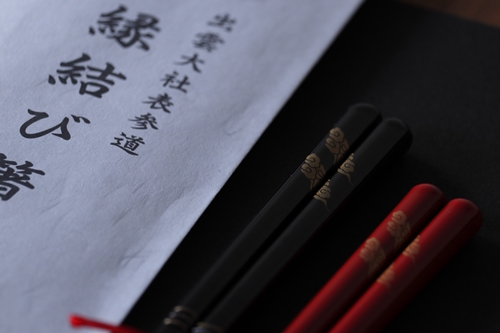 出雲大社表参道
縁結び箸